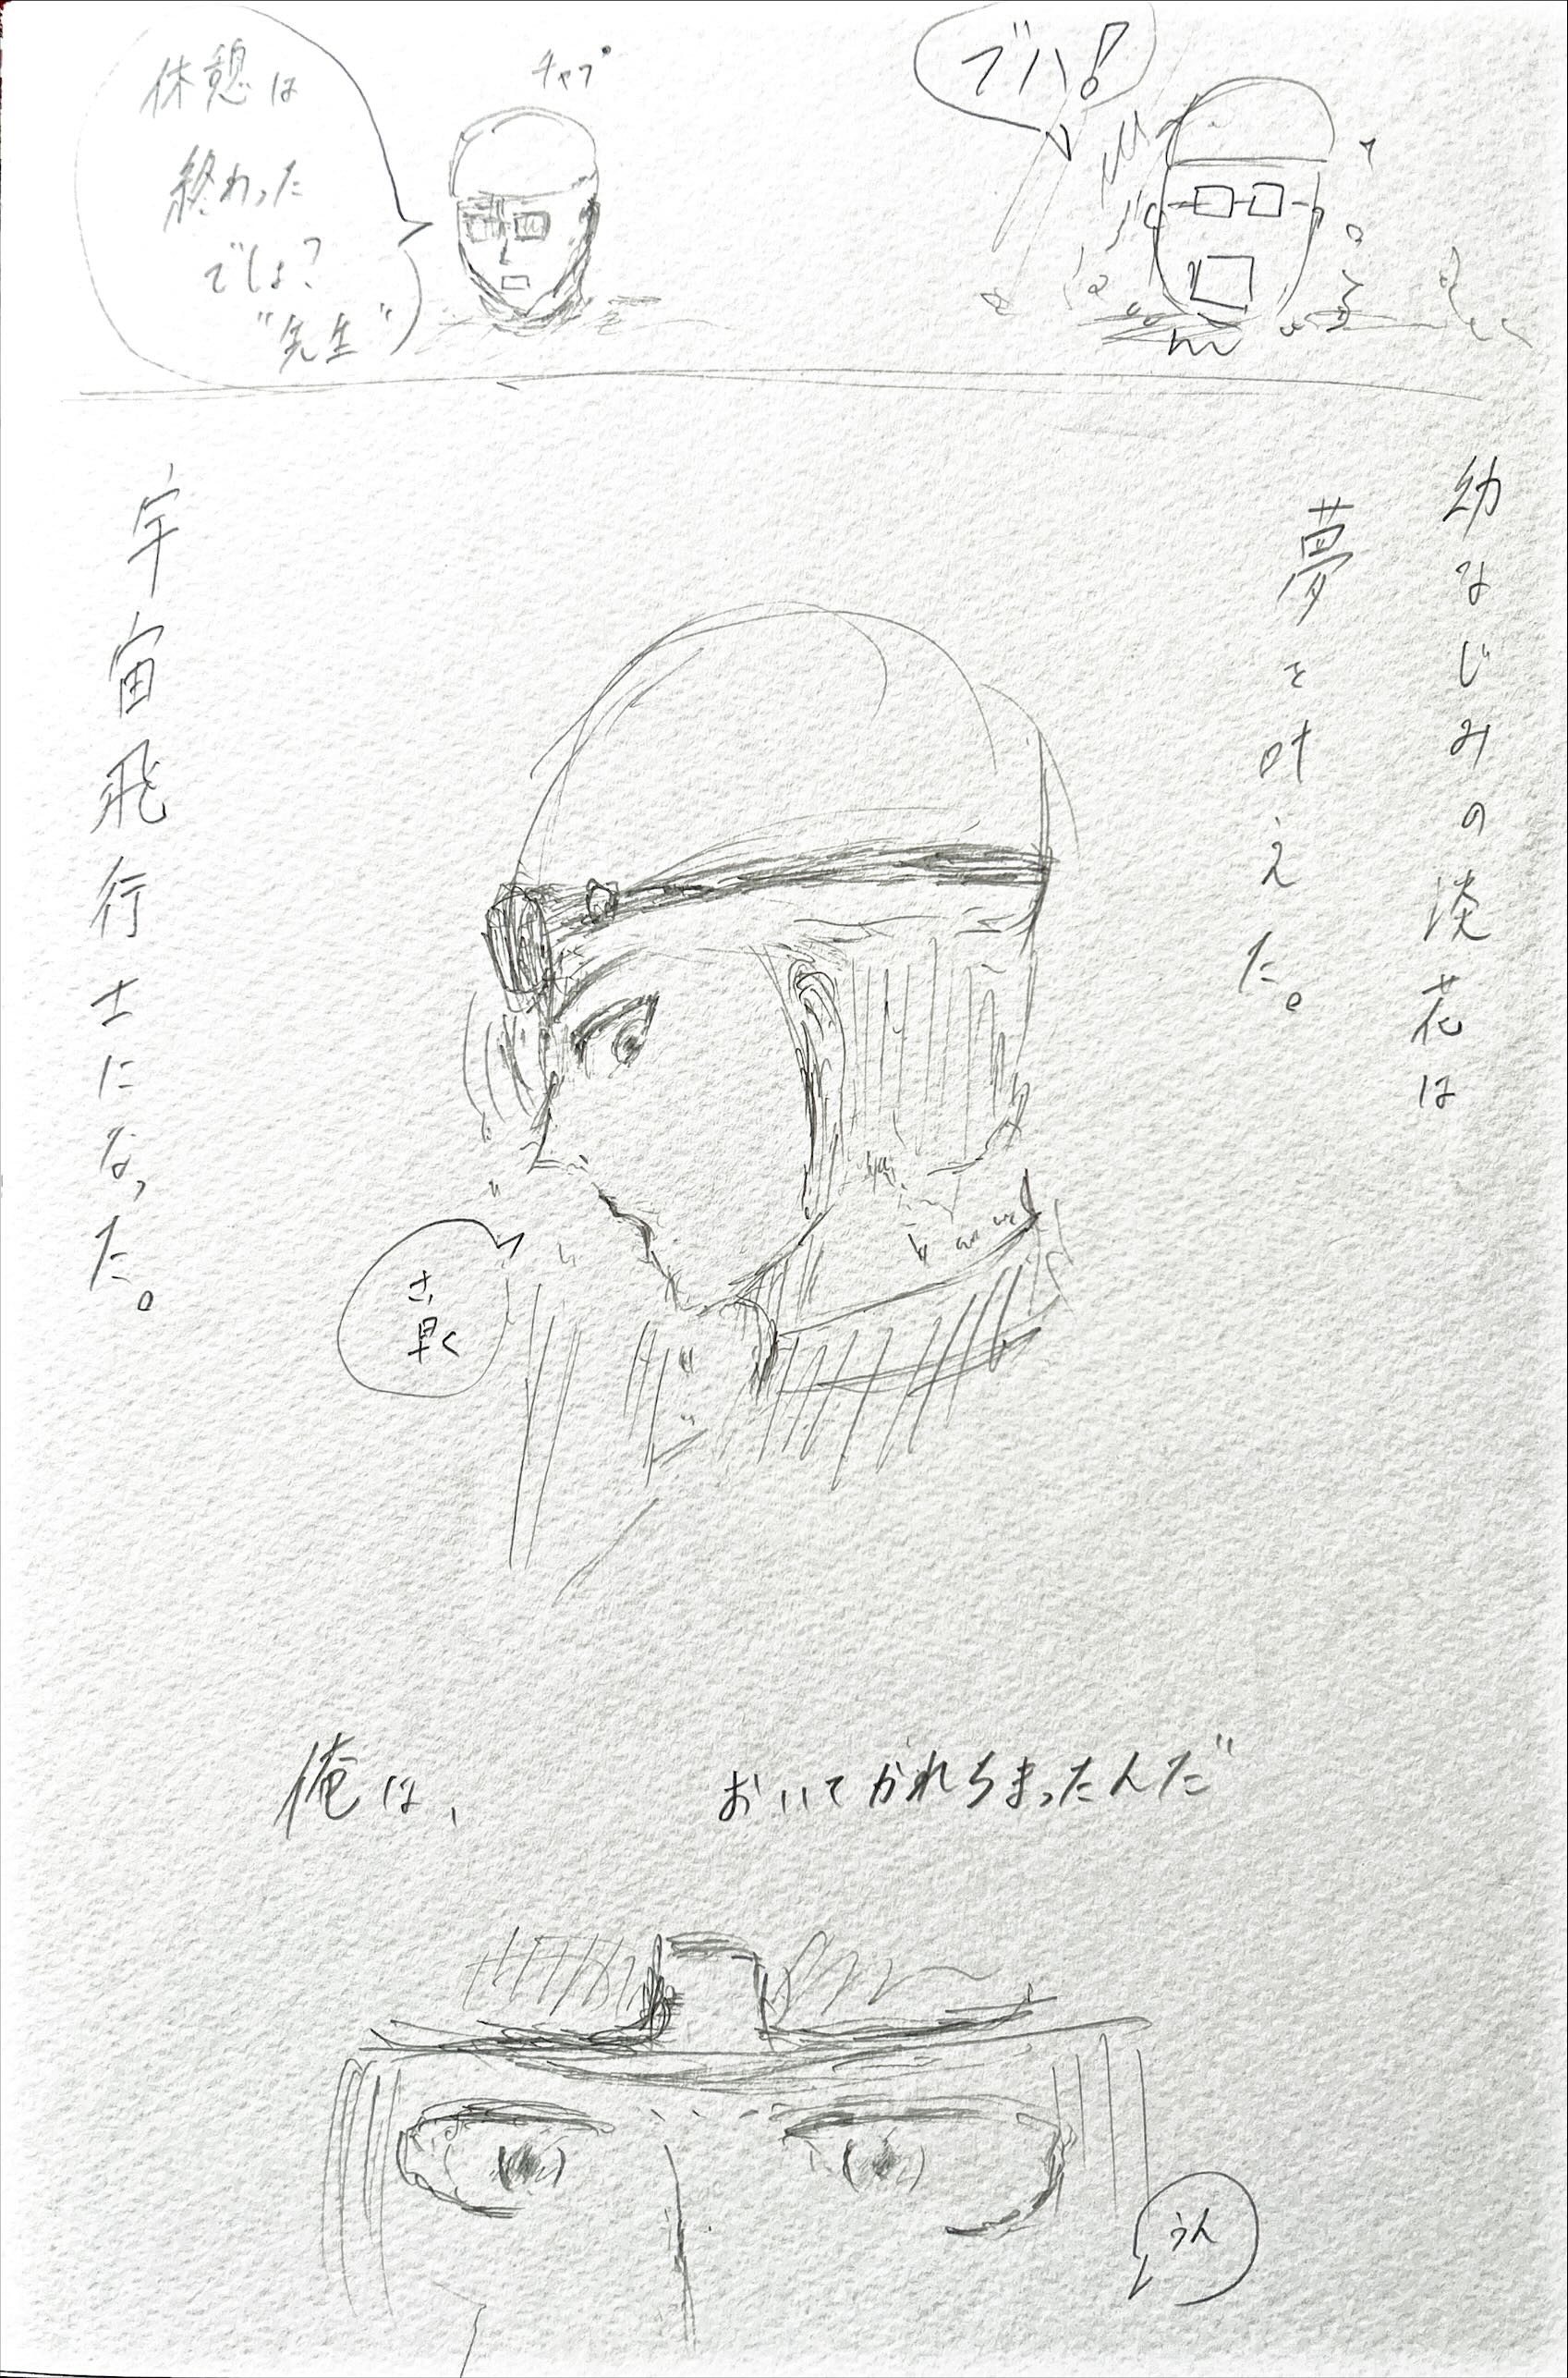 ブハ!
チャプ
休憩は
終わった
でしょ?
"先生"
幼なじみの淡花は
夢を叶えた。
宇宙飛行士になった。
さ、
早く
俺は、
おいてかれちまったんだ
うん